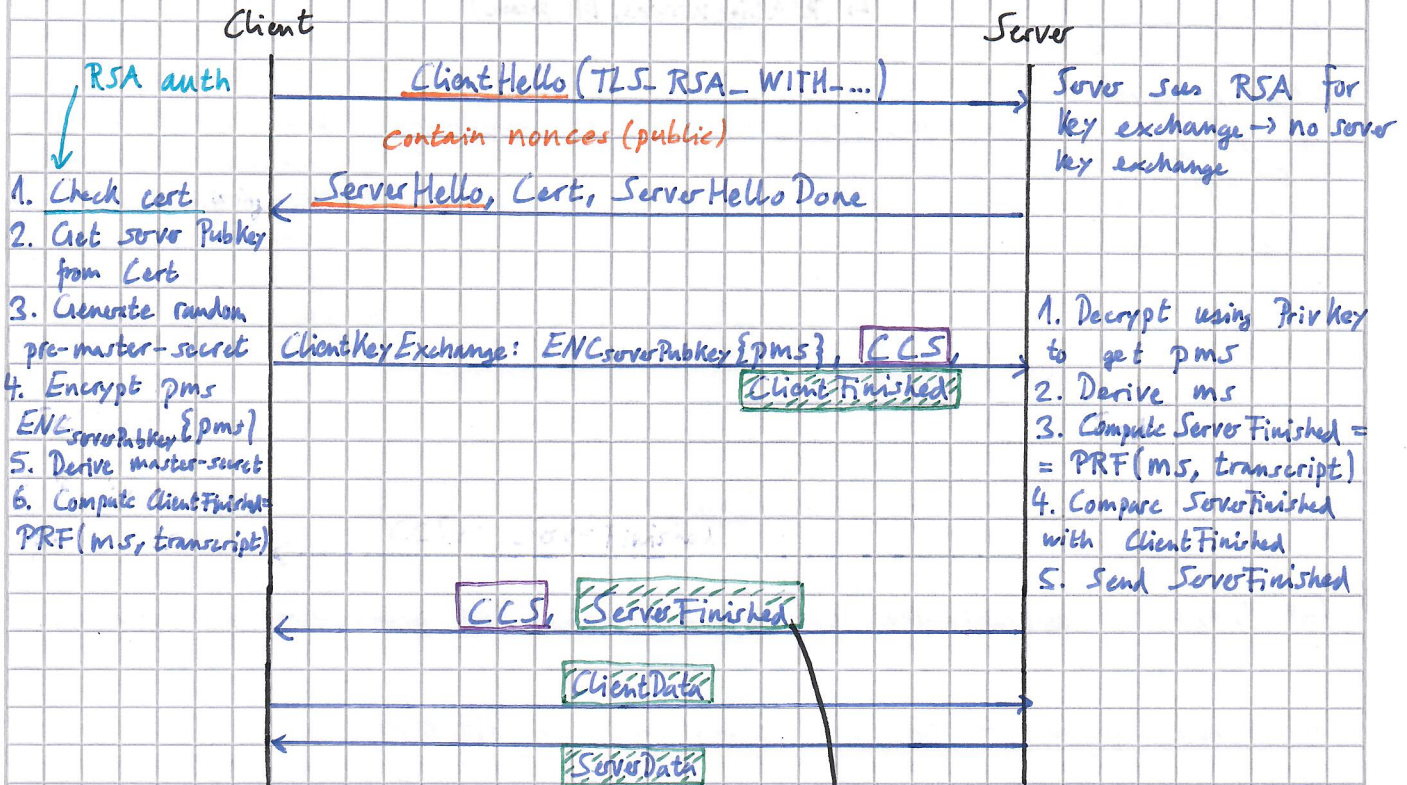 Client
Server
RSA auth
ClientHello (TLS_RSA_WITH_...)
contain nonces (public)
Server sees RSA for
key exchange → no server
key exchange
1. Check cert
2. Get server PubKey
from Cert
3. Generate random
pre-master-secret
4. Encrypt pms
ENC serverPubKey {pms}
5. Derive master-secret
6. Compute ClientFinished=
PRF(ms, transcript)
ServerHello, Cert, ServerHelloDone
ClientKeyExchange: ENC serverPubKey {pms}, CCS,
ClientFinished
1. Decrypt using PrivKey
to get pms
2. Derive ms
3. Compute ServerFinished =
= PRF(ms, transcript)
4. Compare ServerFinished
with ClientFinished
5. Send ServerFinished
CCS, ServerFinished
ClientData
ServerData